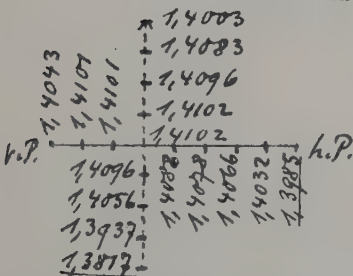 1,4003
1,4083
1,4096
1,4102
1,4102
1,4043
1,4101
1,4101
v.P.
h.P.
1,4096
1,4056
1,3937
1,3817
1,4082
1,4078
1,4066
1,4032
1,3985